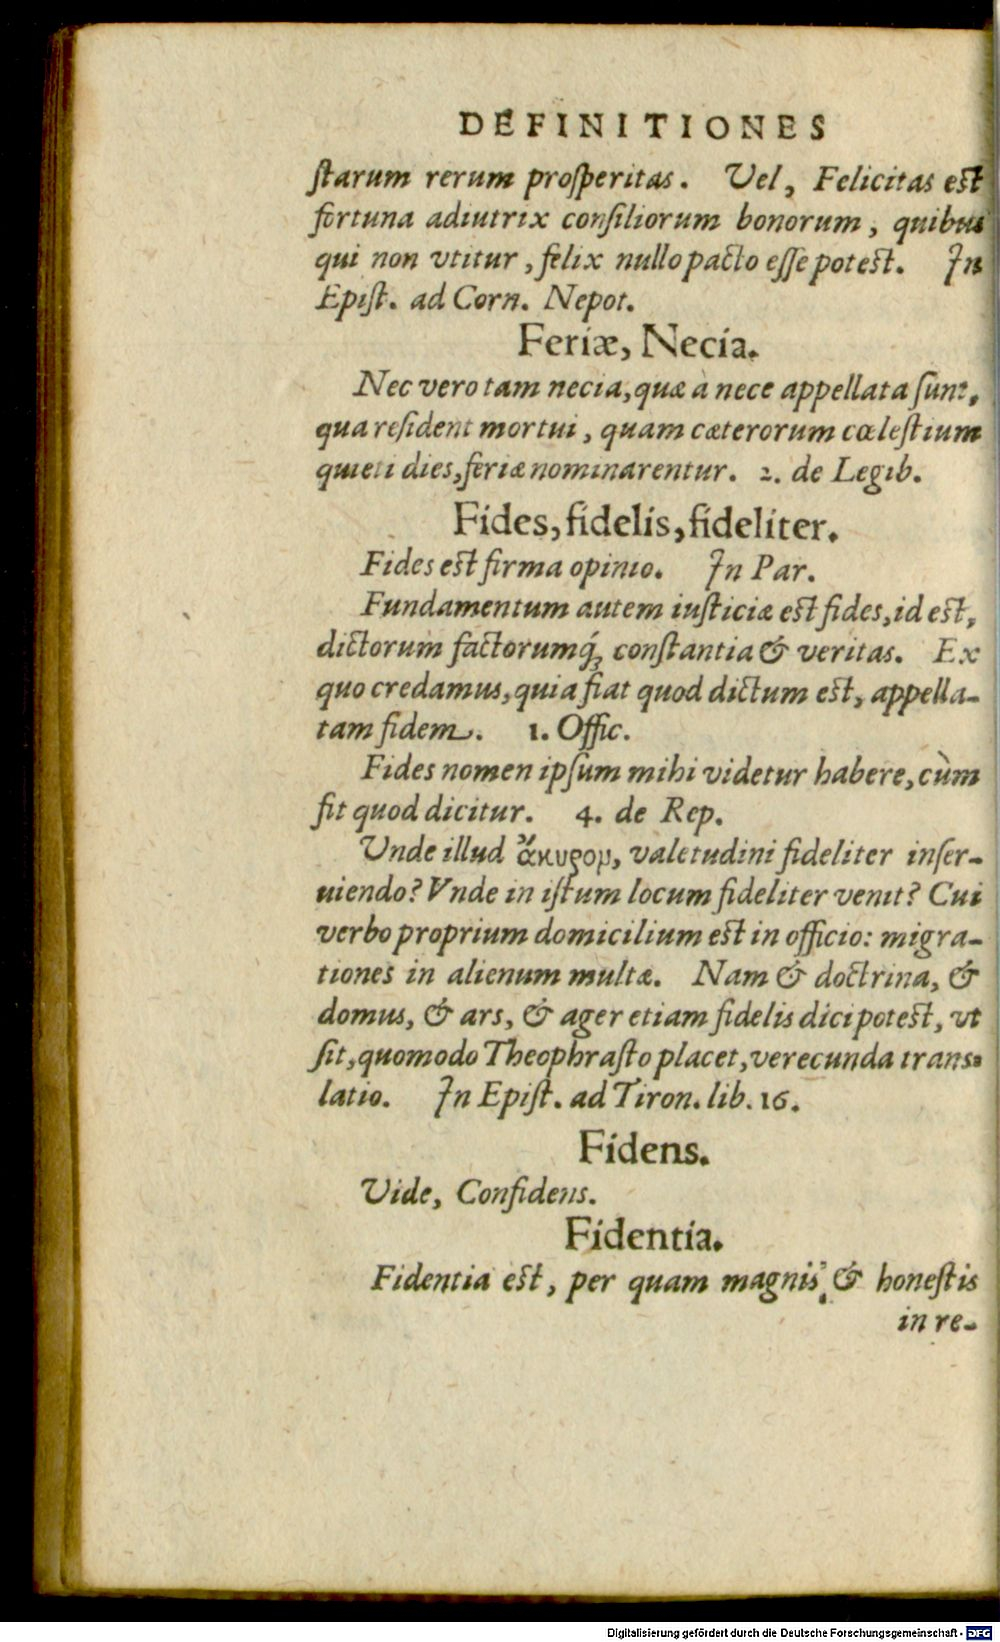 DEFINITIONES
ſtarum rerum proſperitas. Vel, Felicitas est
fortuna adiutrix conſiliorum bonorum, quibus
qui non vtitur, felix nullo pacto eſſe potest. In
Epiſt. ad Corn. Nepot.
Feriæ, Necia.
Nec vero tam necia, quæ à nece appellata ſunt,
qua reſident mortui, quam cæterorum cœleſtium
quieti dies, feriæ nominarentur. 2. de Legib.
Fides, fidelis, fideliter.
Fides est firma opinio. In Par.
Fundamentum autem iuſticiæ est fides, id est,
dictorum factorumq́; conſtantia & veritas. Ex
quo credamus, quia fiat quod dictum est, appella-
tam fidem. 1. Offic.
Fides nomen ipſum mihi videtur habere, cùm
fit quod dicitur. 4. de Rep.
Vnde illud ἄκυρομ, valetudini fideliter inſer-
uiendo? Vnde in iſtum locum fideliter venit? Cui
verbo proprium domicilium est in officio: migra-
tiones in alienum multæ. Nam & doctrina, &
domus, & ars, & ager etiam fidelis dici potest, vt
ſit, quomodo Theophraſto placet, verecunda trans-
latio. In Epiſt. ad Tiron. lib. 16.
Fidens.
Vide, Confidens.
Fidentia.
Fidentia est, per quam magnis & honeſtis
in re-
Digitalisierung gefördert durch die Deutsche Forschungsgemeinschaft - DFG